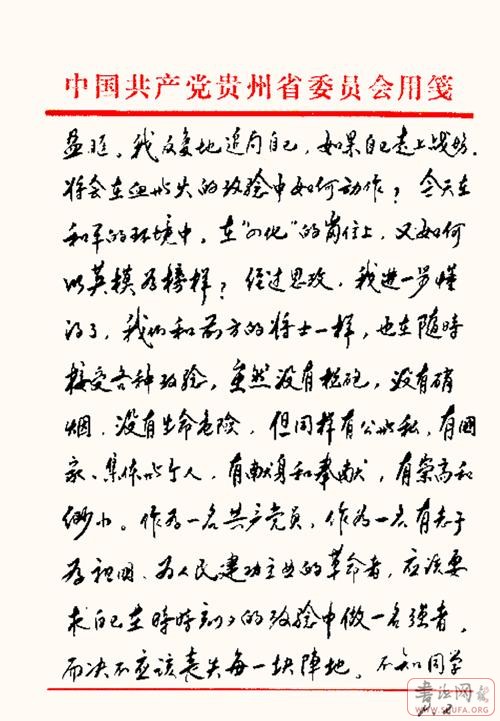 中国共产党贵州省委员会用笺
盈眶。我反复地追问自己，如果自己走上战场，
将会在血与火的考验中如何动作？今天在
和平的环境中，在“四化”的岗位上，又如何
以英模为榜样？经过思考，我进一步懂
得了，我们和前方的将士一样，也在随時
接受各种考验，虽然没有枪砲，没有硝
烟，没有生命危险，但同样有公与私，有國
家、集体与个人，有献身和奉献，有崇高和
渺小。作为一名共产党员，作为一名有志于
为祖国、为人民建功立业的革命者，应该要
求自己在時時刻刻的考验中做一名强者，
而决不应该丧失每一块阵地。不知同学